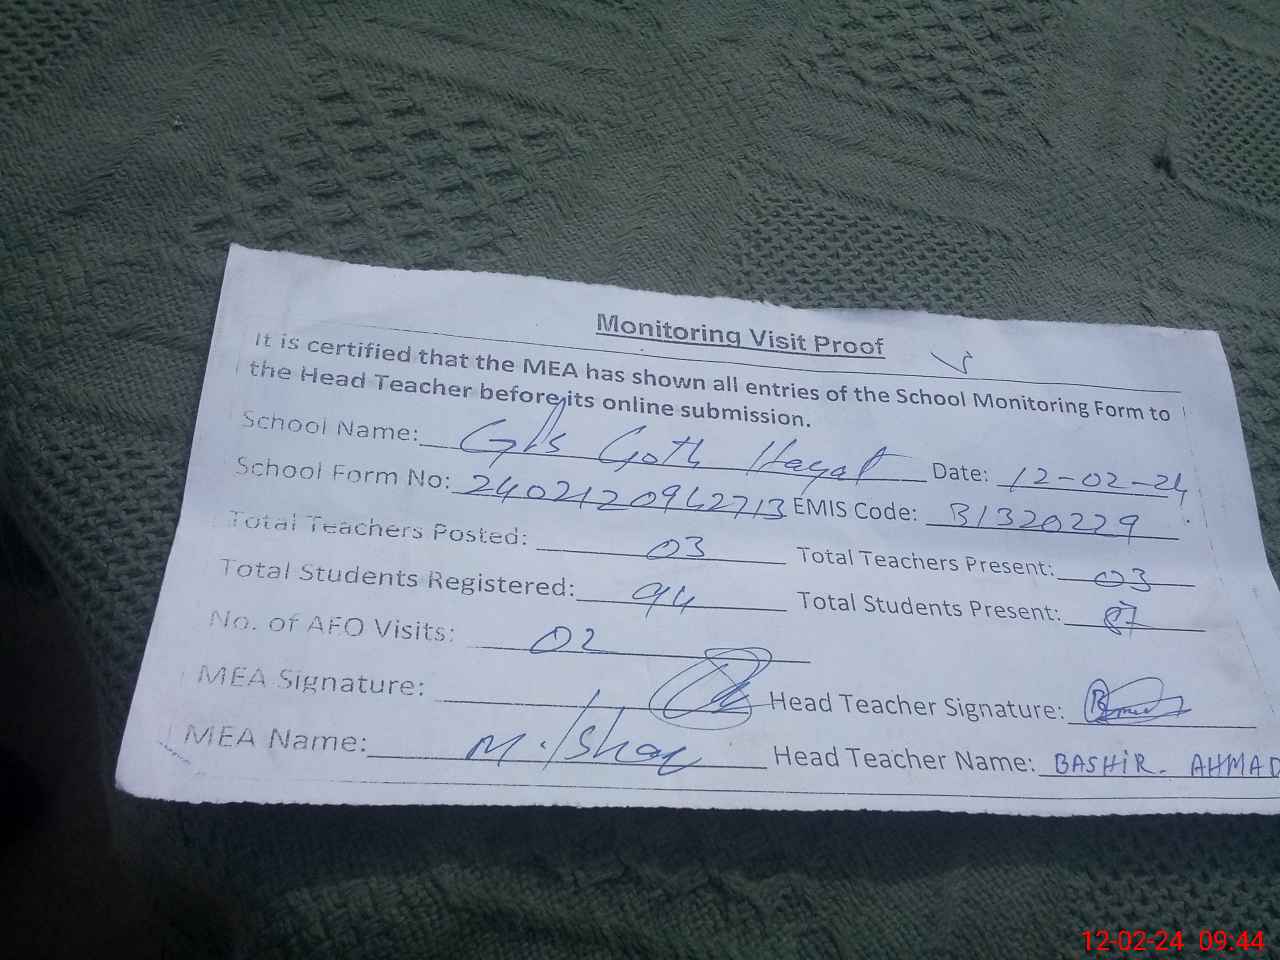 Monitoring Visit Proof
It is certified that the MEA has shown all entries of the School Monitoring Form to
the Head Teacher before its online submission.
School Name: Goth Hayat Date: 12-02-24
School Form No: 2402120942713 EMIS Code: 31320229
Total Teachers Posted: 03 Total Teachers Present: 03
Total Students Registered: 94 Total Students Present: 87
No. of AEO Visits: 02
MEA Signature: Head Teacher Signature:
MEA Name: M. Head Teacher Name: BASHiR. AHMAD
12-02-24 09:44